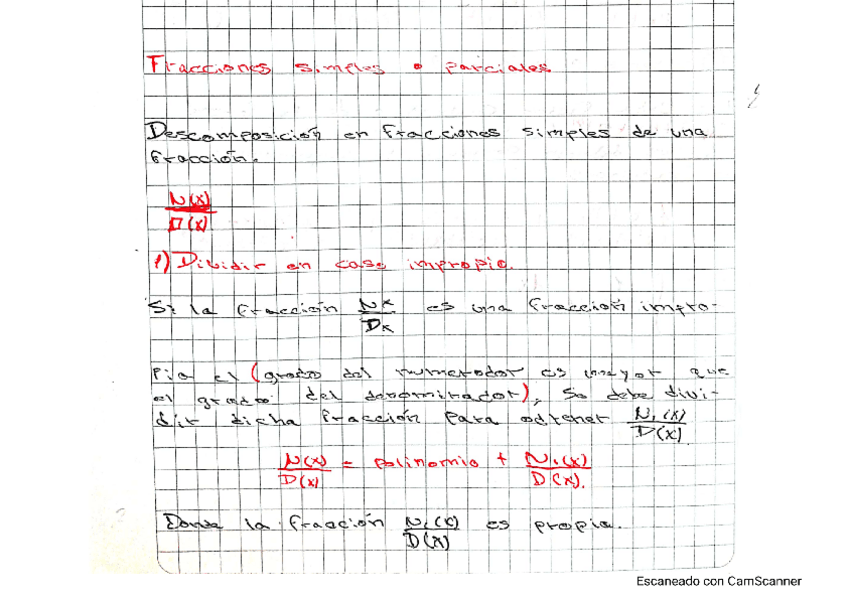 Fracciones simples o parciales
Descomposición en fracciones simples de una
fracción.
N(x)
D(x)
1) Dividir en caso impropio.
Si la fracción Nx/Dx es una fracción impro-
pia el (grado del numerador es mayor que
el grado del denominador), se debe divi-
dir dicha fracción para obtener N₁(x)/D(x)
N(x)/D(x) = polinomio + N₁(x)/D(x).
Donde la fracción N₁(x)/D(x) es propia.
Escaneado con CamScanner